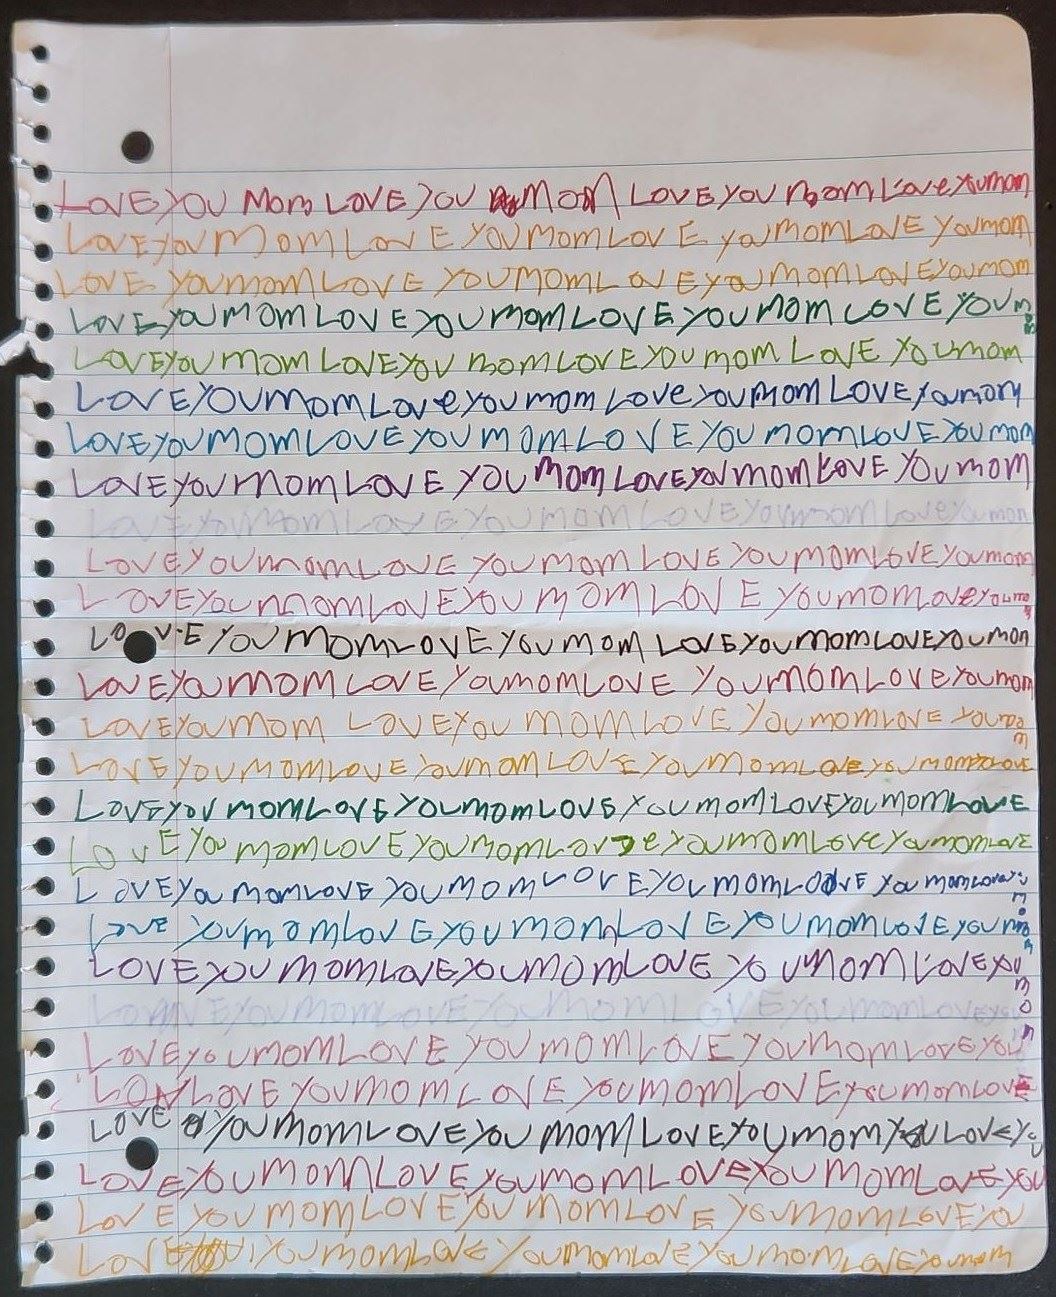 LOVE YOU Mom LOVE YOU MOM LOVE YOU mom Love You mom
LOVE YOU mom LOVE YOU MOM LOVE YOU MOM LOVE YOU mom
LOVE YOU mom LOVE YOU MOM LOVE YOU Mom LOVE YOU mom
LOVE YOU MOM LOVE YOU MOM LOVE YOU MOM LOVE YOU mom
LOVE YOU MOM LOVE YOU mom LOVE YOU mom LOVE YOU mom
LOVE YOU mom Love you mom Love you mom LOVE You mom
LOVE YOU MOM LOVE YOU MOM LOVE YOU mom LOVE YOU mom
LOVE YOU mom LOVE YOU mom LOVE YOU mom LOVE YOU mom
LOVE YOU mom LOVE YOU MOM LOVE YOU mom Love You mom
LOVE YOU mom LOVE YOU mom LOVE YOU mom LOVE You mom
LOVE YOU mom LOVE YOU MOM LOVE YOU mom Love You mom
LOVE YOU mom LOVE YOU mom LOVE YOU mom LOVE YOU mom
LOVE YOU MOM LOVE YOU mom LOVE YOU MOM LOVE You mom
LOVE YOU mom LOVE YOU MOM LOVE YOU mom LOVE YOU mom
LOVE YOU mom LOVE YOU mom LOVE YOU mom LOVE YOU mom LOVE
LOVE YOU mom LOVE YOU mom LOVE YOU mom LOVE YOU mom LOVE
LOVE YOU mom LOVE YOU mom Love you mom Love You mom LOVE
LOVE YOU mom LOVE YOU MOM LOVE YOU mom LOVE YOU mom Love you mom
Love YOU mom LOVE YOU mom LOVE YOU mom LOVE YOU mom
LOVE YOU mom LOVE YOU mom LOVE YOU mom LOVE YOU mom
LOVE YOU mom LOVE YOU mom LOVE YOU mom Love you
LOVE YOU mom LOVE YOU mom LOVE YOU mom LOVE YOU
LOVE YOU mom LOVE YOU mom LOVE YOU mom LOVE
LOVE YOU mom LOVE YOU mom LOVE YOU mom LOVE YOU
LOVE YOU mom LOVE YOU mom LOVE YOU mom LOVE YOU
LOVE YOU mom LOVE YOU mom LOVE YOU mom LOVE YO
LOVE YOU mom LOVE YOU mom LOVE YOU mom LOVE YOU mom